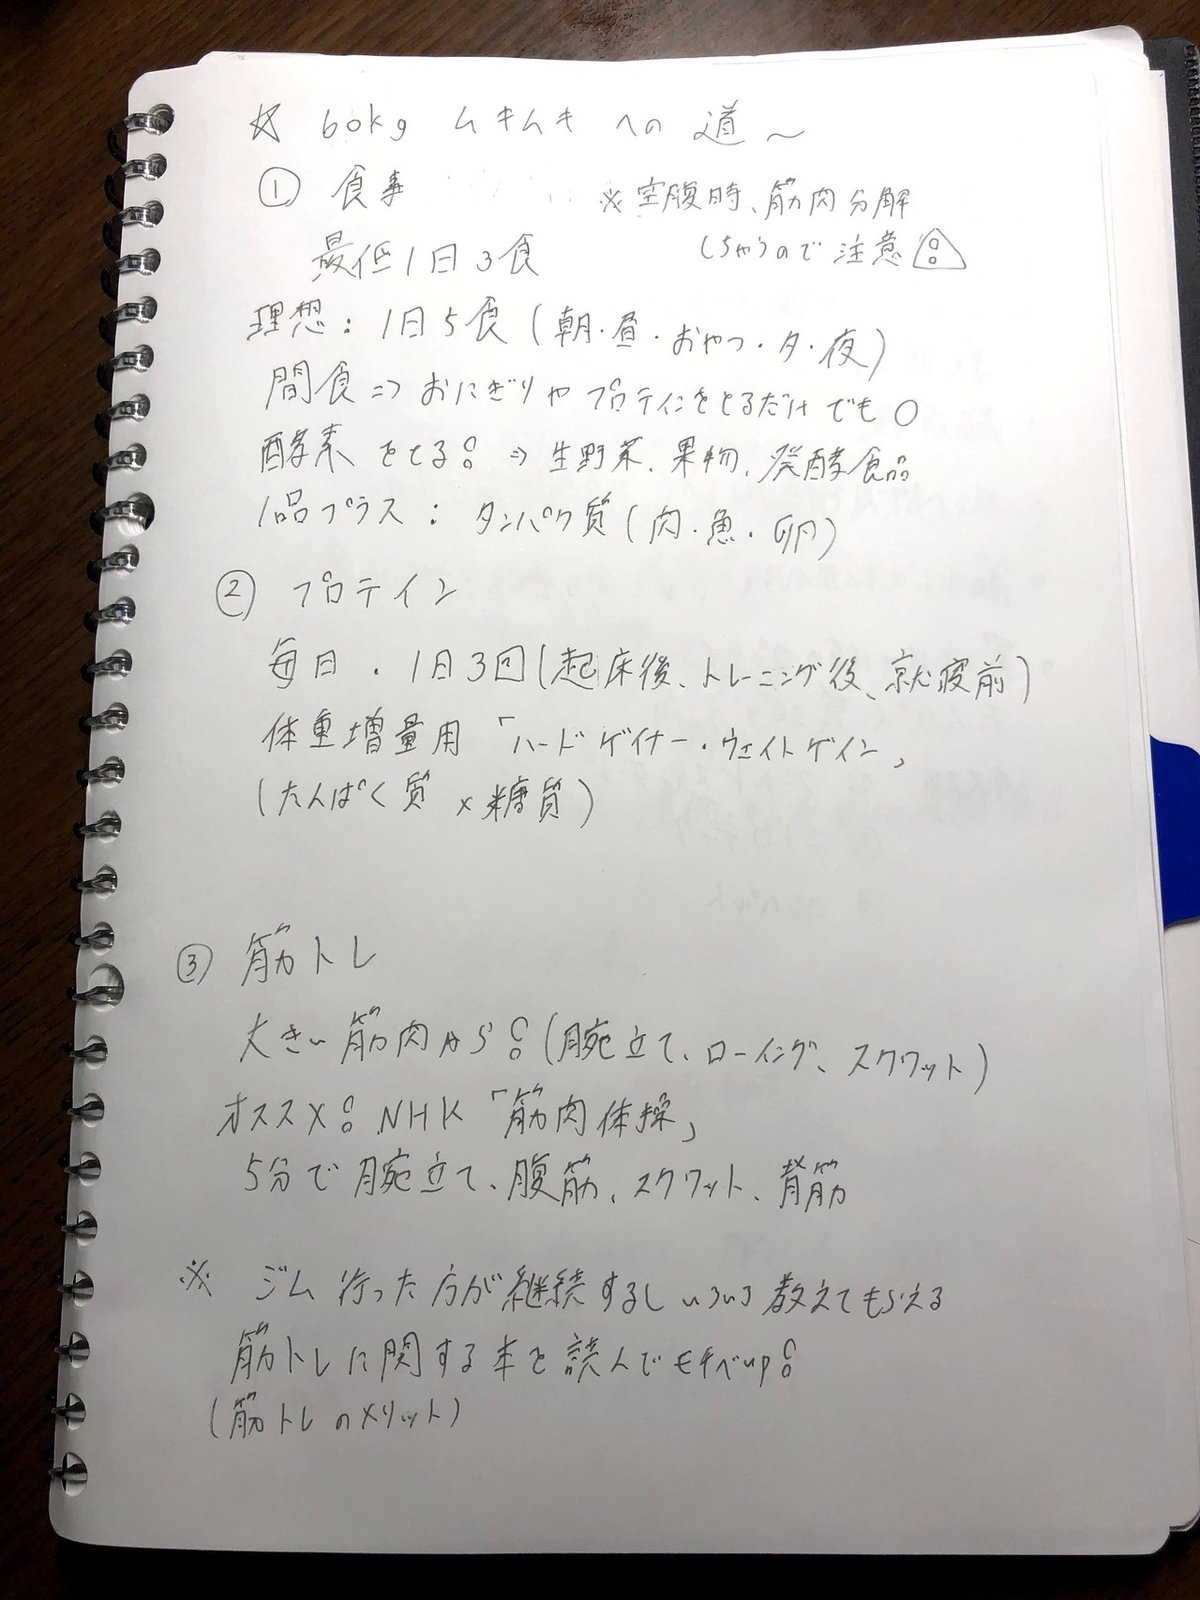 ☆ 60kg ムキムキ への 道～
① 食事
※空腹時、筋肉分解
しちゃうので 注意⚠
最低1日3食
理想：1日5食(朝・昼・おやつ・夕・夜)
間食⇒おにぎりやプロテインをとるだけでも○
酵素をとる! ⇒ 生野菜、果物、発酵食品
1品プラス：タンパク質(肉・魚・卵)
② プロテイン
毎日・1日3回(起床後、トレーニング後、就寝前)
体重増量用「ハードゲイナー・ウェイトゲイン」
(たんぱく質×糖質)
③ 筋トレ
大きい筋肉から!(腕立て、ローイング、スクワット)
オススメ! NHK「筋肉体操」
5分で腕立て、腹筋、スクワット、背筋
※ ジム行った方が継続するしいろいろ教えてもらえる
筋トレに関する本を読んでモチベup!
(筋トレのメリット)